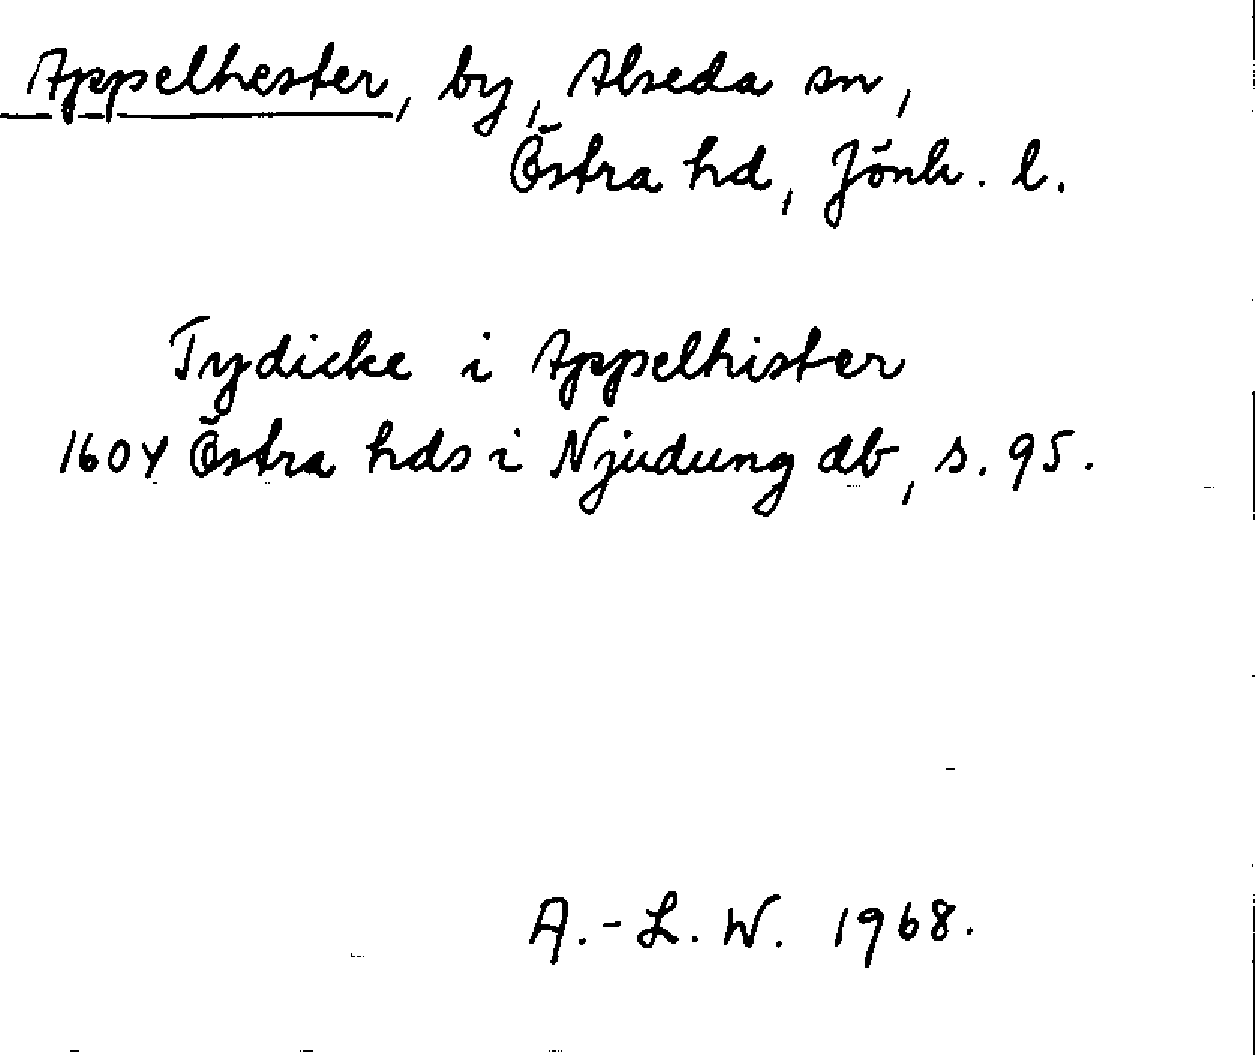 Appelhester, by, Alseda sn,
Östra hd, Jönk. l.
Tydicke i Appelhister
1604 Östra hds i Njudung db, s. 95.
A.-L. W. 1968.